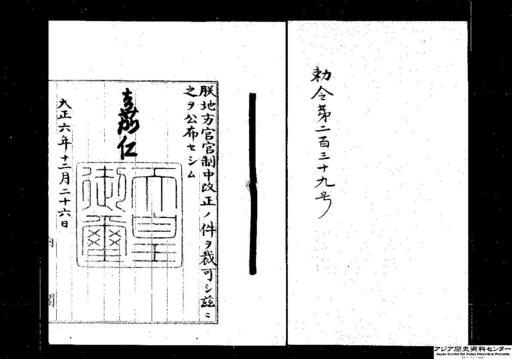 勅令第二百三十九号
朕地方官官制中改正ノ件ヲ裁可シ茲ニ
之ヲ公布セシム
嘉仁
天皇御璽
大正六年十二月二十六日
内閣
アジア歴史資料センター
Japan Center for Asian Historical Records